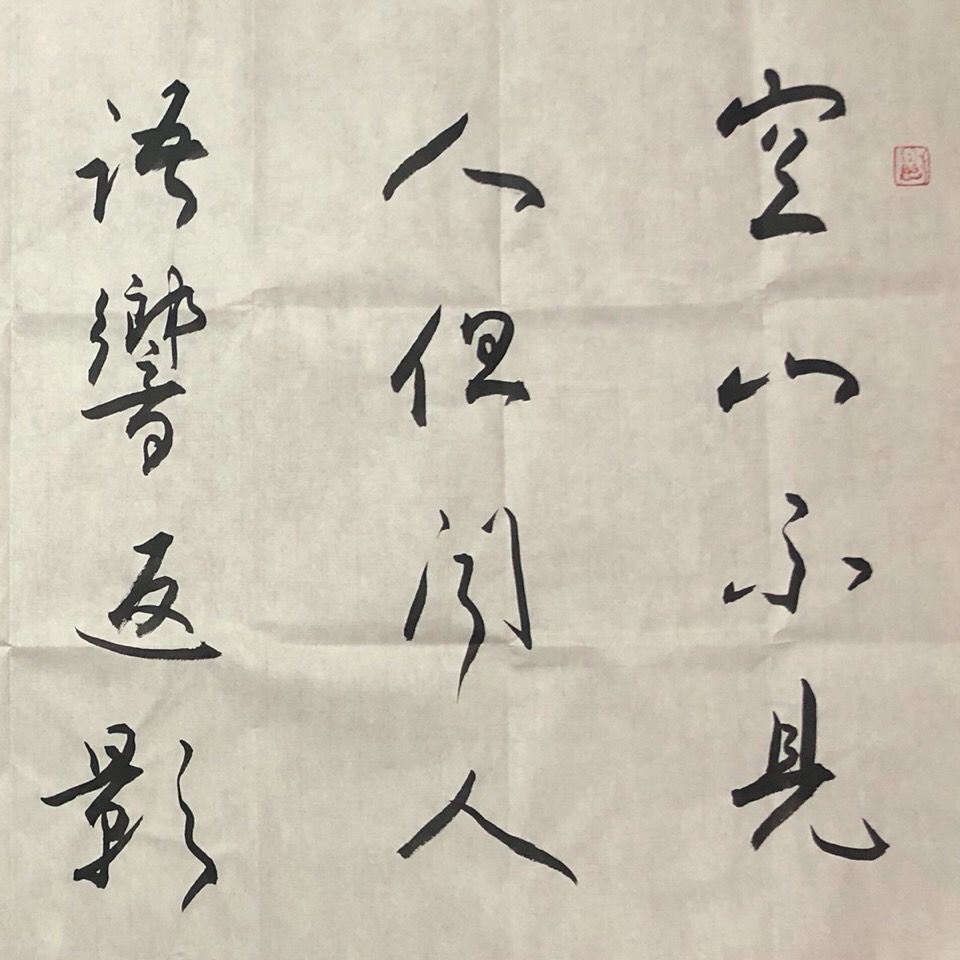 空山不見
人但聞人
語響返影